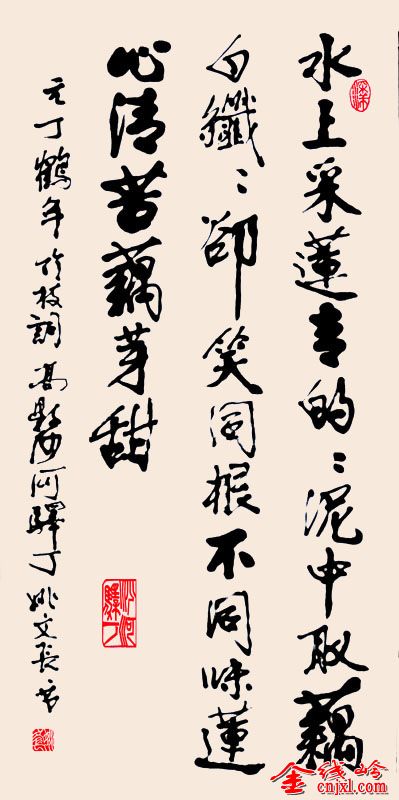 水上采蓮青的〻泥中取藕
白纖〻卻笑同根不同味蓮
心清苦藕芽甜
元丁鶴年竹枝詞 沙河驛丁 姚文長書
沙河驛丁
金线岭
cnjxl.com